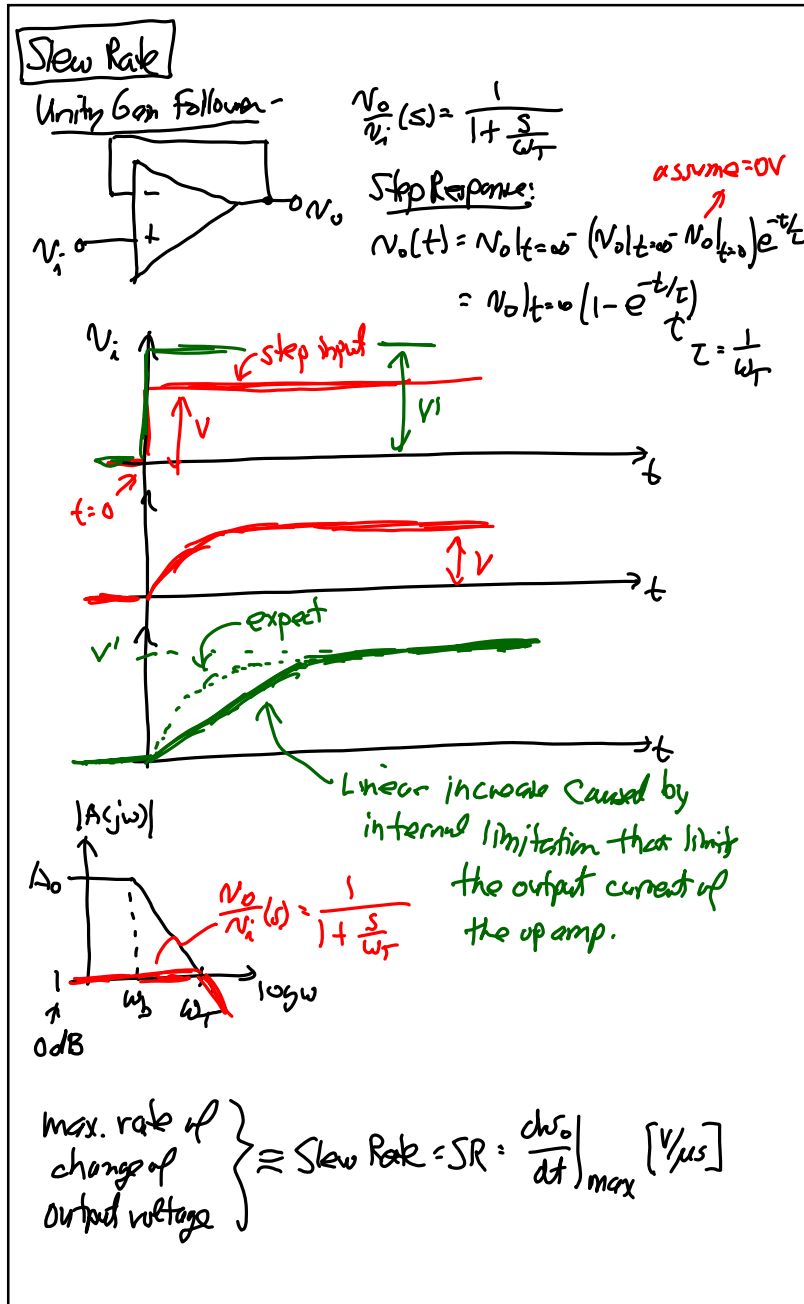 Slew Rate
Unity Gain Follower -
v_o/v_i (s) = 1/(1 + s/ω_T)
- + v_i v_o
assume = 0V
Step Response:
v_o(t) = v_o|t=∞ - (v_o|t=∞ - v_o|t=0) e^{-t/τ}
= v_o|t=∞ (1 - e^{-t/τ})
τ = 1/ω_T
v_i
step input
V
V'
t
t=0
V
t
expect
V'
t
Linear increase caused by
internal limitation that limit
the output current of
the op amp.
|A(jω)|
A_o
v_o/v_i (s) = 1/(1 + s/ω_T)
1
ω_b ω_T log ω
0dB
max. rate of
change of
output voltage
} ≡ Slew Rate = SR = dv_o/dt |max [V/μs]